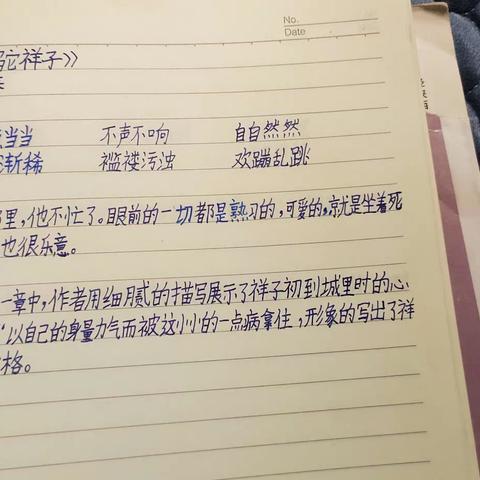 No.
Date
驼祥子》
当当 不声不响 自自然然
渐稀 褴褛污浊 欢蹦乱跳
里，他不忙了。眼前的一切都是熟习的，可爱的，京就是坐着死
也很乐意。
一章中，作者用细腻的描写展示了祥子初到城里时的心
“以自己的身量力气而被这小小的一点病拿住，形象的写出了祥
格。